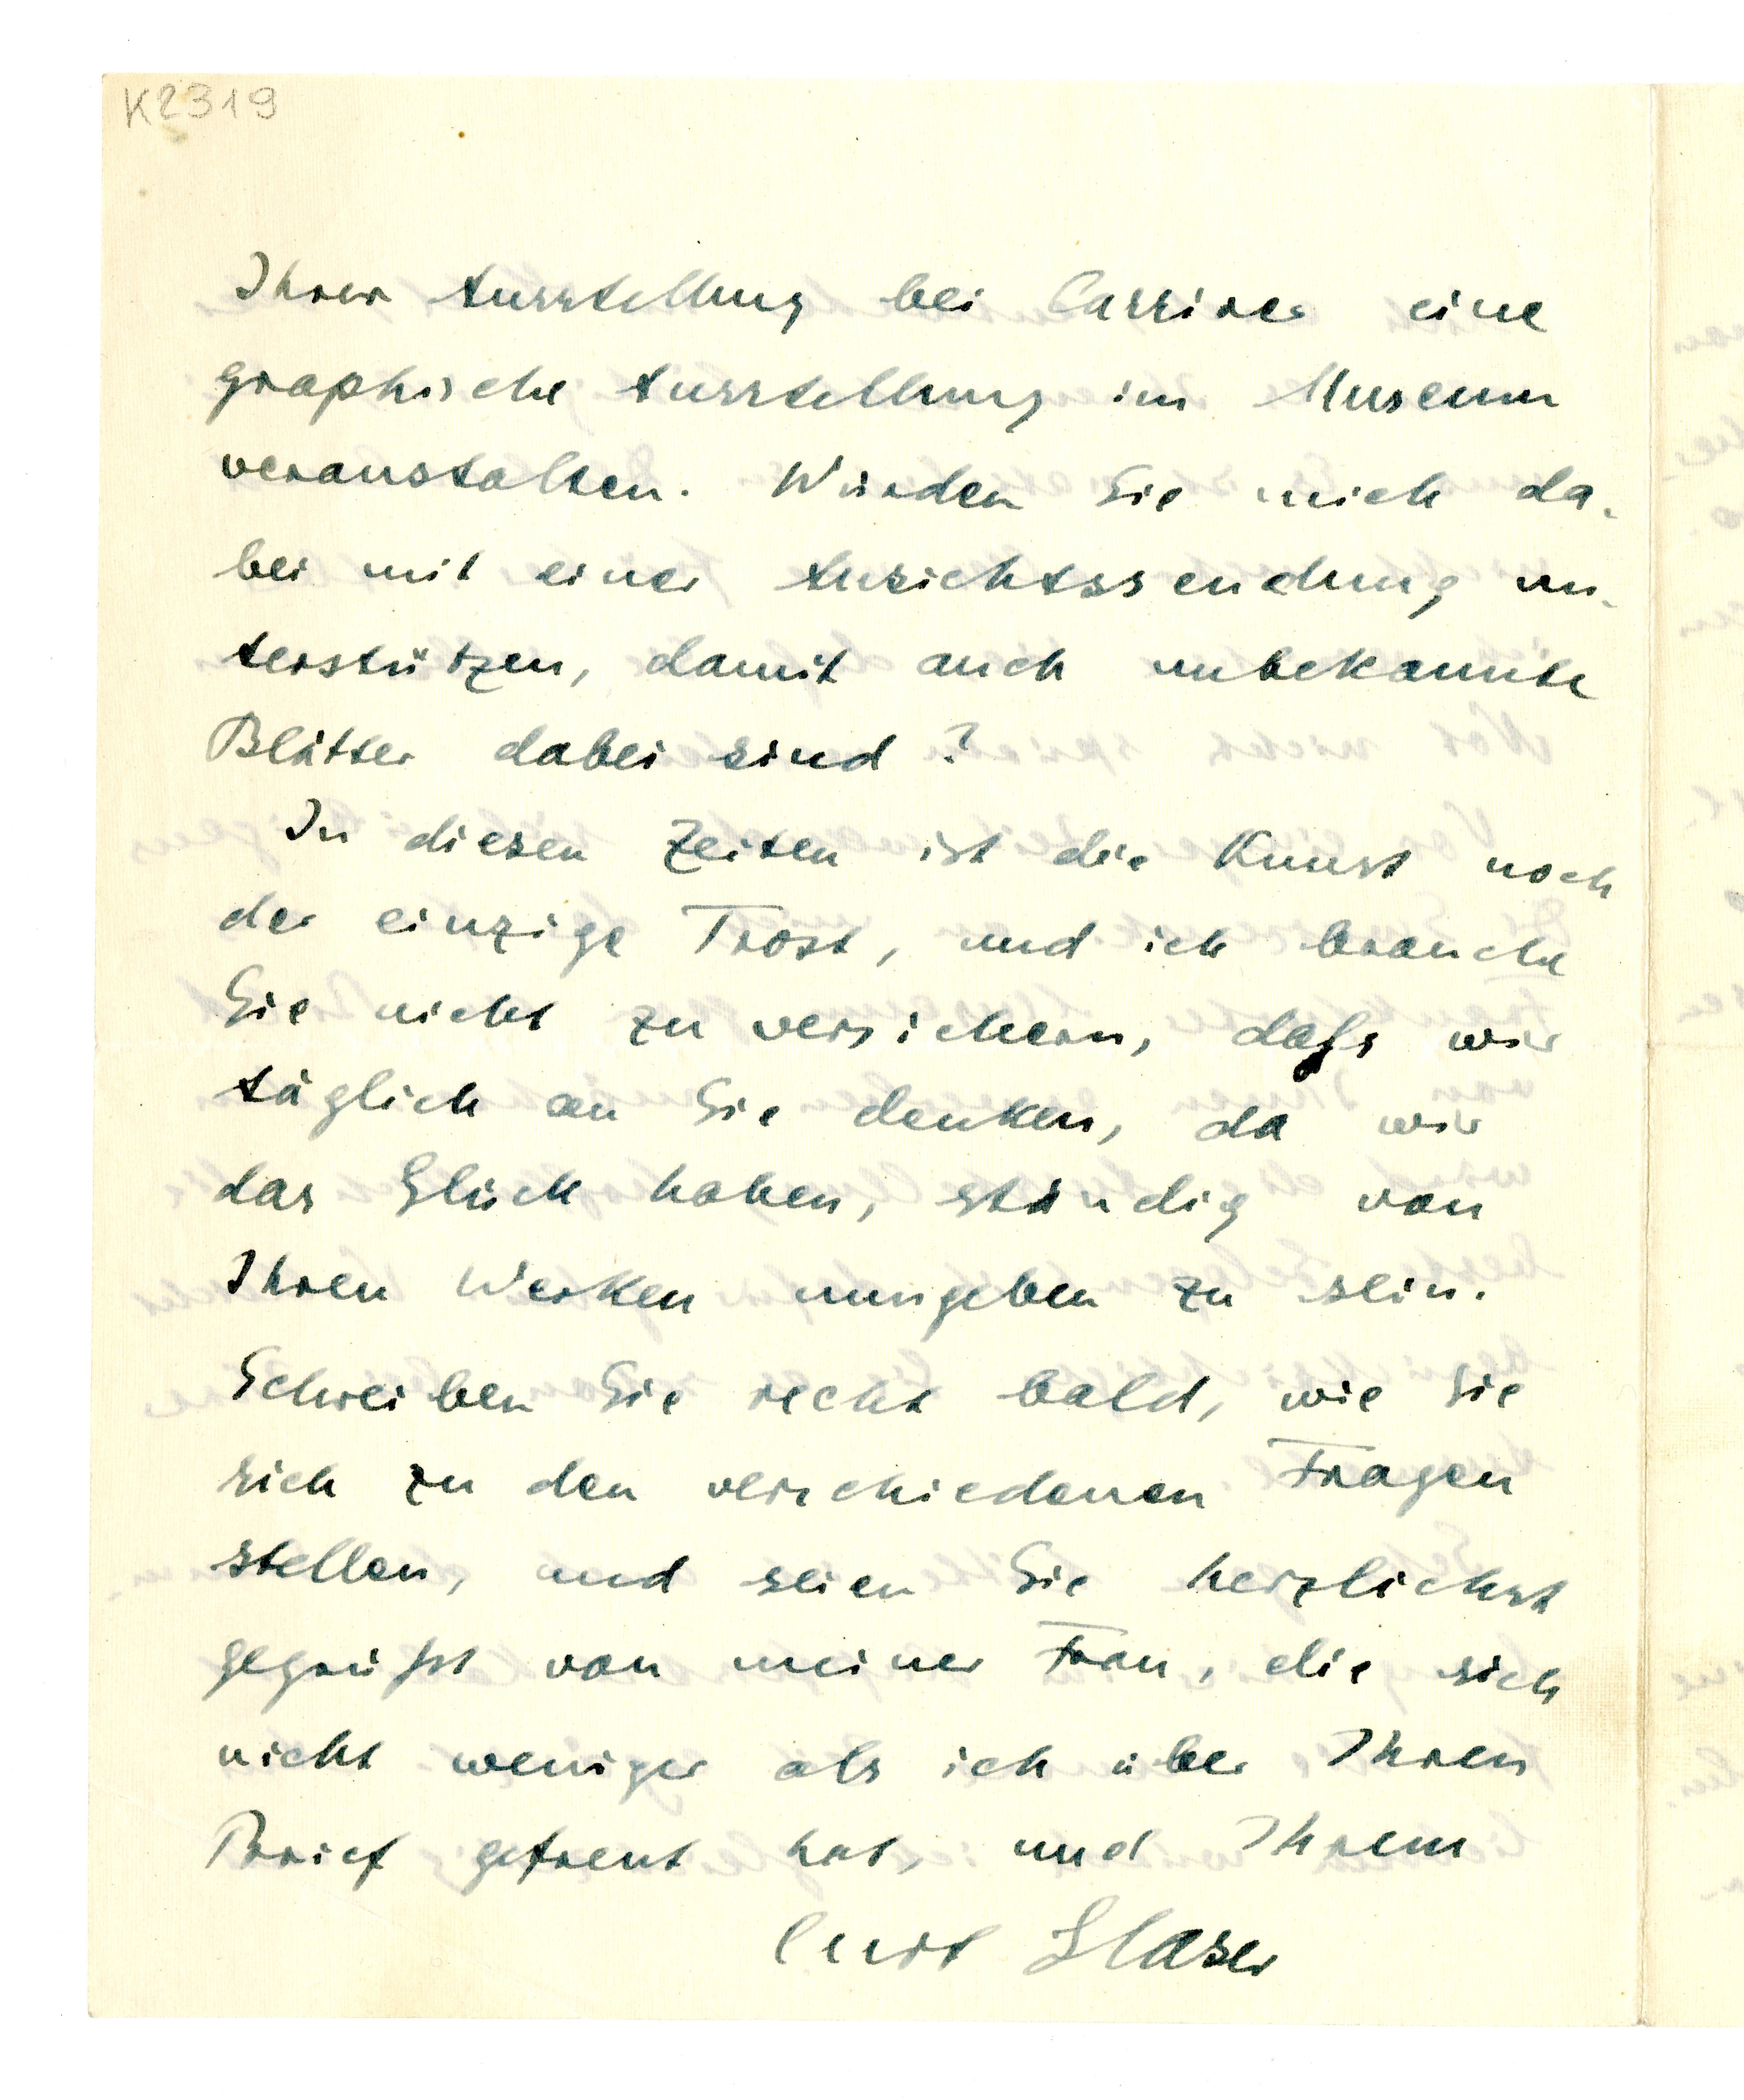 K2319
Ihrer Ausstellung bei Cassirer eine
graphische Ausstellung im Museum
veranstalten. Würden Sie mich da-
bei mit einer Ansichtssendung un-
terstützen, damit auch unbekannte
Blätter dabei sind?
In diesen Zeiten ist die Kunst noch
der einzige Trost, und ich brauche
Sie nicht zu versichern, dass wir
täglich an Sie denken, da wir
das Glück haben, ständig von
Ihren Werken umgeben zu sein.
Schreiben Sie recht bald, wie Sie
sich zu den verschiedenen Fragen
stellen, und seien Sie herzlichst
gegrüsst von meiner Frau, die sich
nicht weniger als ich über Ihren
Brief gefreut hat, und Ihrem
Curt Glaser